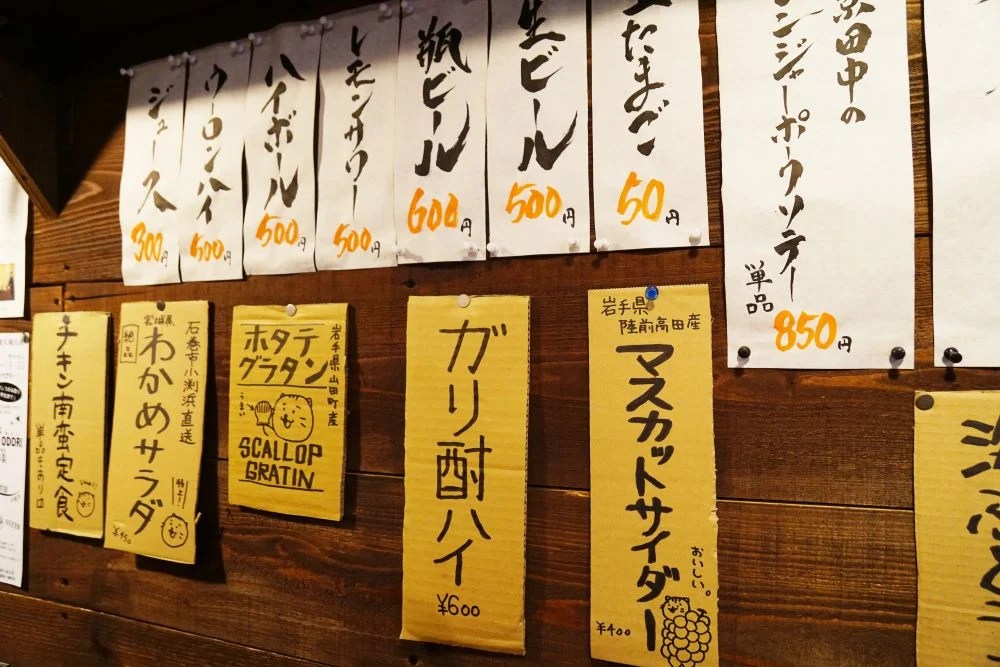 ジュース
300円
ウーロンハイ
500円
ハイボール
500円
レモンサワー
500円
瓶ビール
600円
生ビール
500円
たまご
50円
田中の
ンジャーポークソテー
単品
850円
チキン南蛮定食
単品もあり〼
宮城県
石巻市小渕浜直送
絶品
わかめサラダ
特上!
¥450
岩手県山田町産
ホタテ
グラタン
うまい
SCALLOP
GRATIN
ガリ酎ハイ
¥600
岩手県
陸前高田産
マスカットサイダー
おいしい。
¥400
ODORI